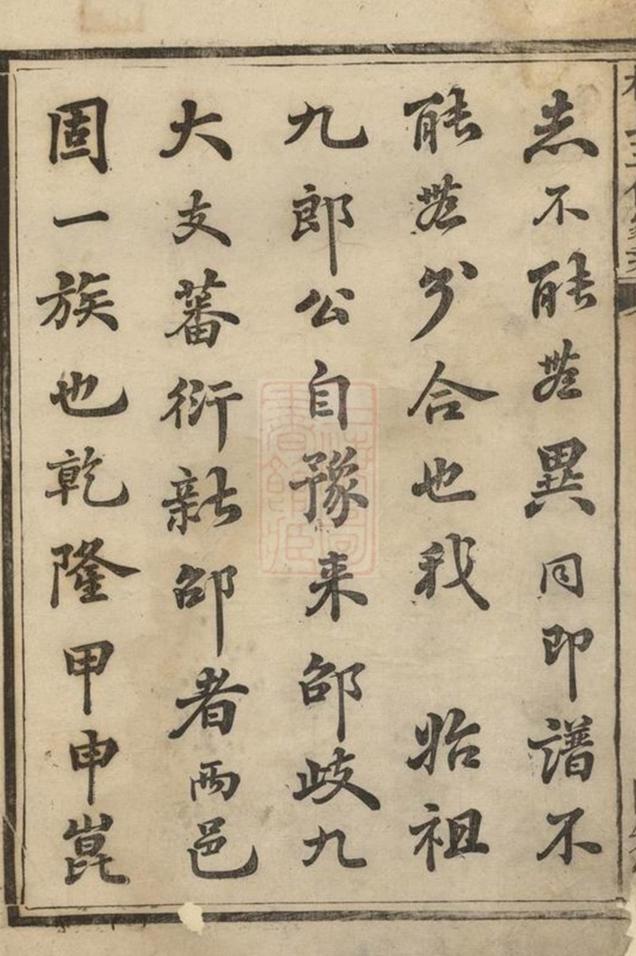 志不能無異同即譜不
能無分合也我 始祖
九郎公自豫来邵歧九
大支蕃衍新邵者兩邑
固一族也乾隆甲申崑